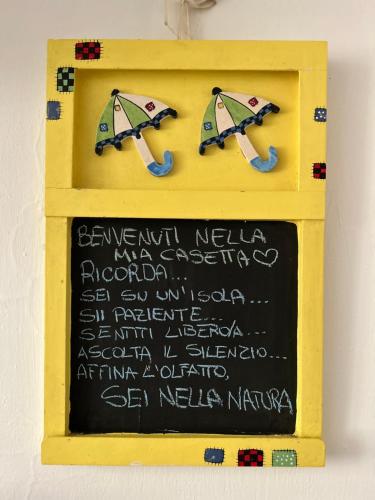 BENVENUTI NELLA
MIA CASETTA♡
RICORDA...
SEI SU UN'ISOLA...
SII PAZIENTE...
SENTITI LIBERO/A...
ASCOLTA IL SILENZIO...
AFFINA L'OLFATTO,
SEI NELLA NATURA